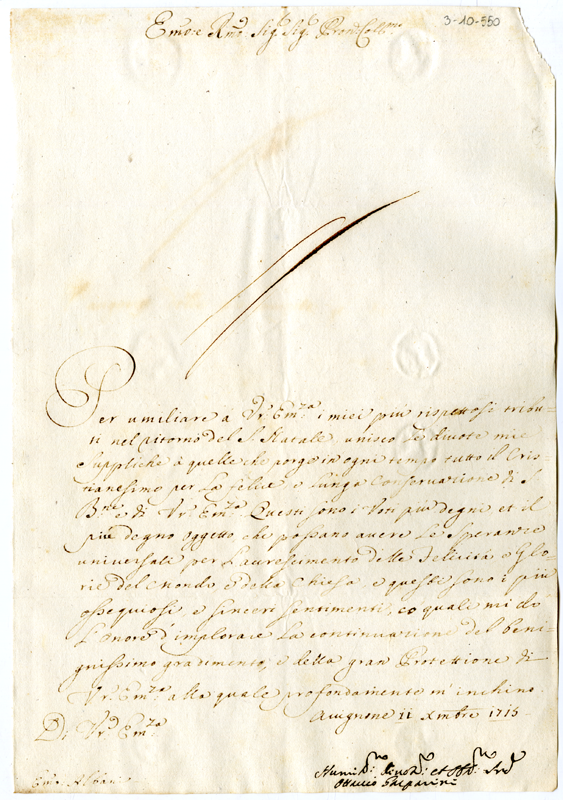 3-10-550
Em:e Rmo: Sig: Sig: Pron: Col:mo
Per umiliare à Vr: Em:za i miei più rispettosi tribu-
ti nel ritorno del S. Natale unisco le divote mie
suppliche à quelle che porge in ogni tempo tutto il Cris-
tianesimo per la felice e lunga Conservazione di S.
B:ne e di Vr: Em:za Questi sono i Voti più degni et il
più degno oggetto che possano avere le Speranze
universali per l'accrescimento delle Felicità e Glo-
rie del Mondo e della Chiesa, e queste sono i più
ossequiosi, e sinceri sentimenti, co quale mi do
l'onore d'implorare la continuazione del beni-
gnissimo gradimento, e della gran Protettione di
Vr: Em:za alla quale profondamente m'inchino.
Avignone 11 Xmbre 1715
Di Vr: Em:za
Humil: Divot: et Obl: Ser:
Ottavio Gasparini
Em: Albani